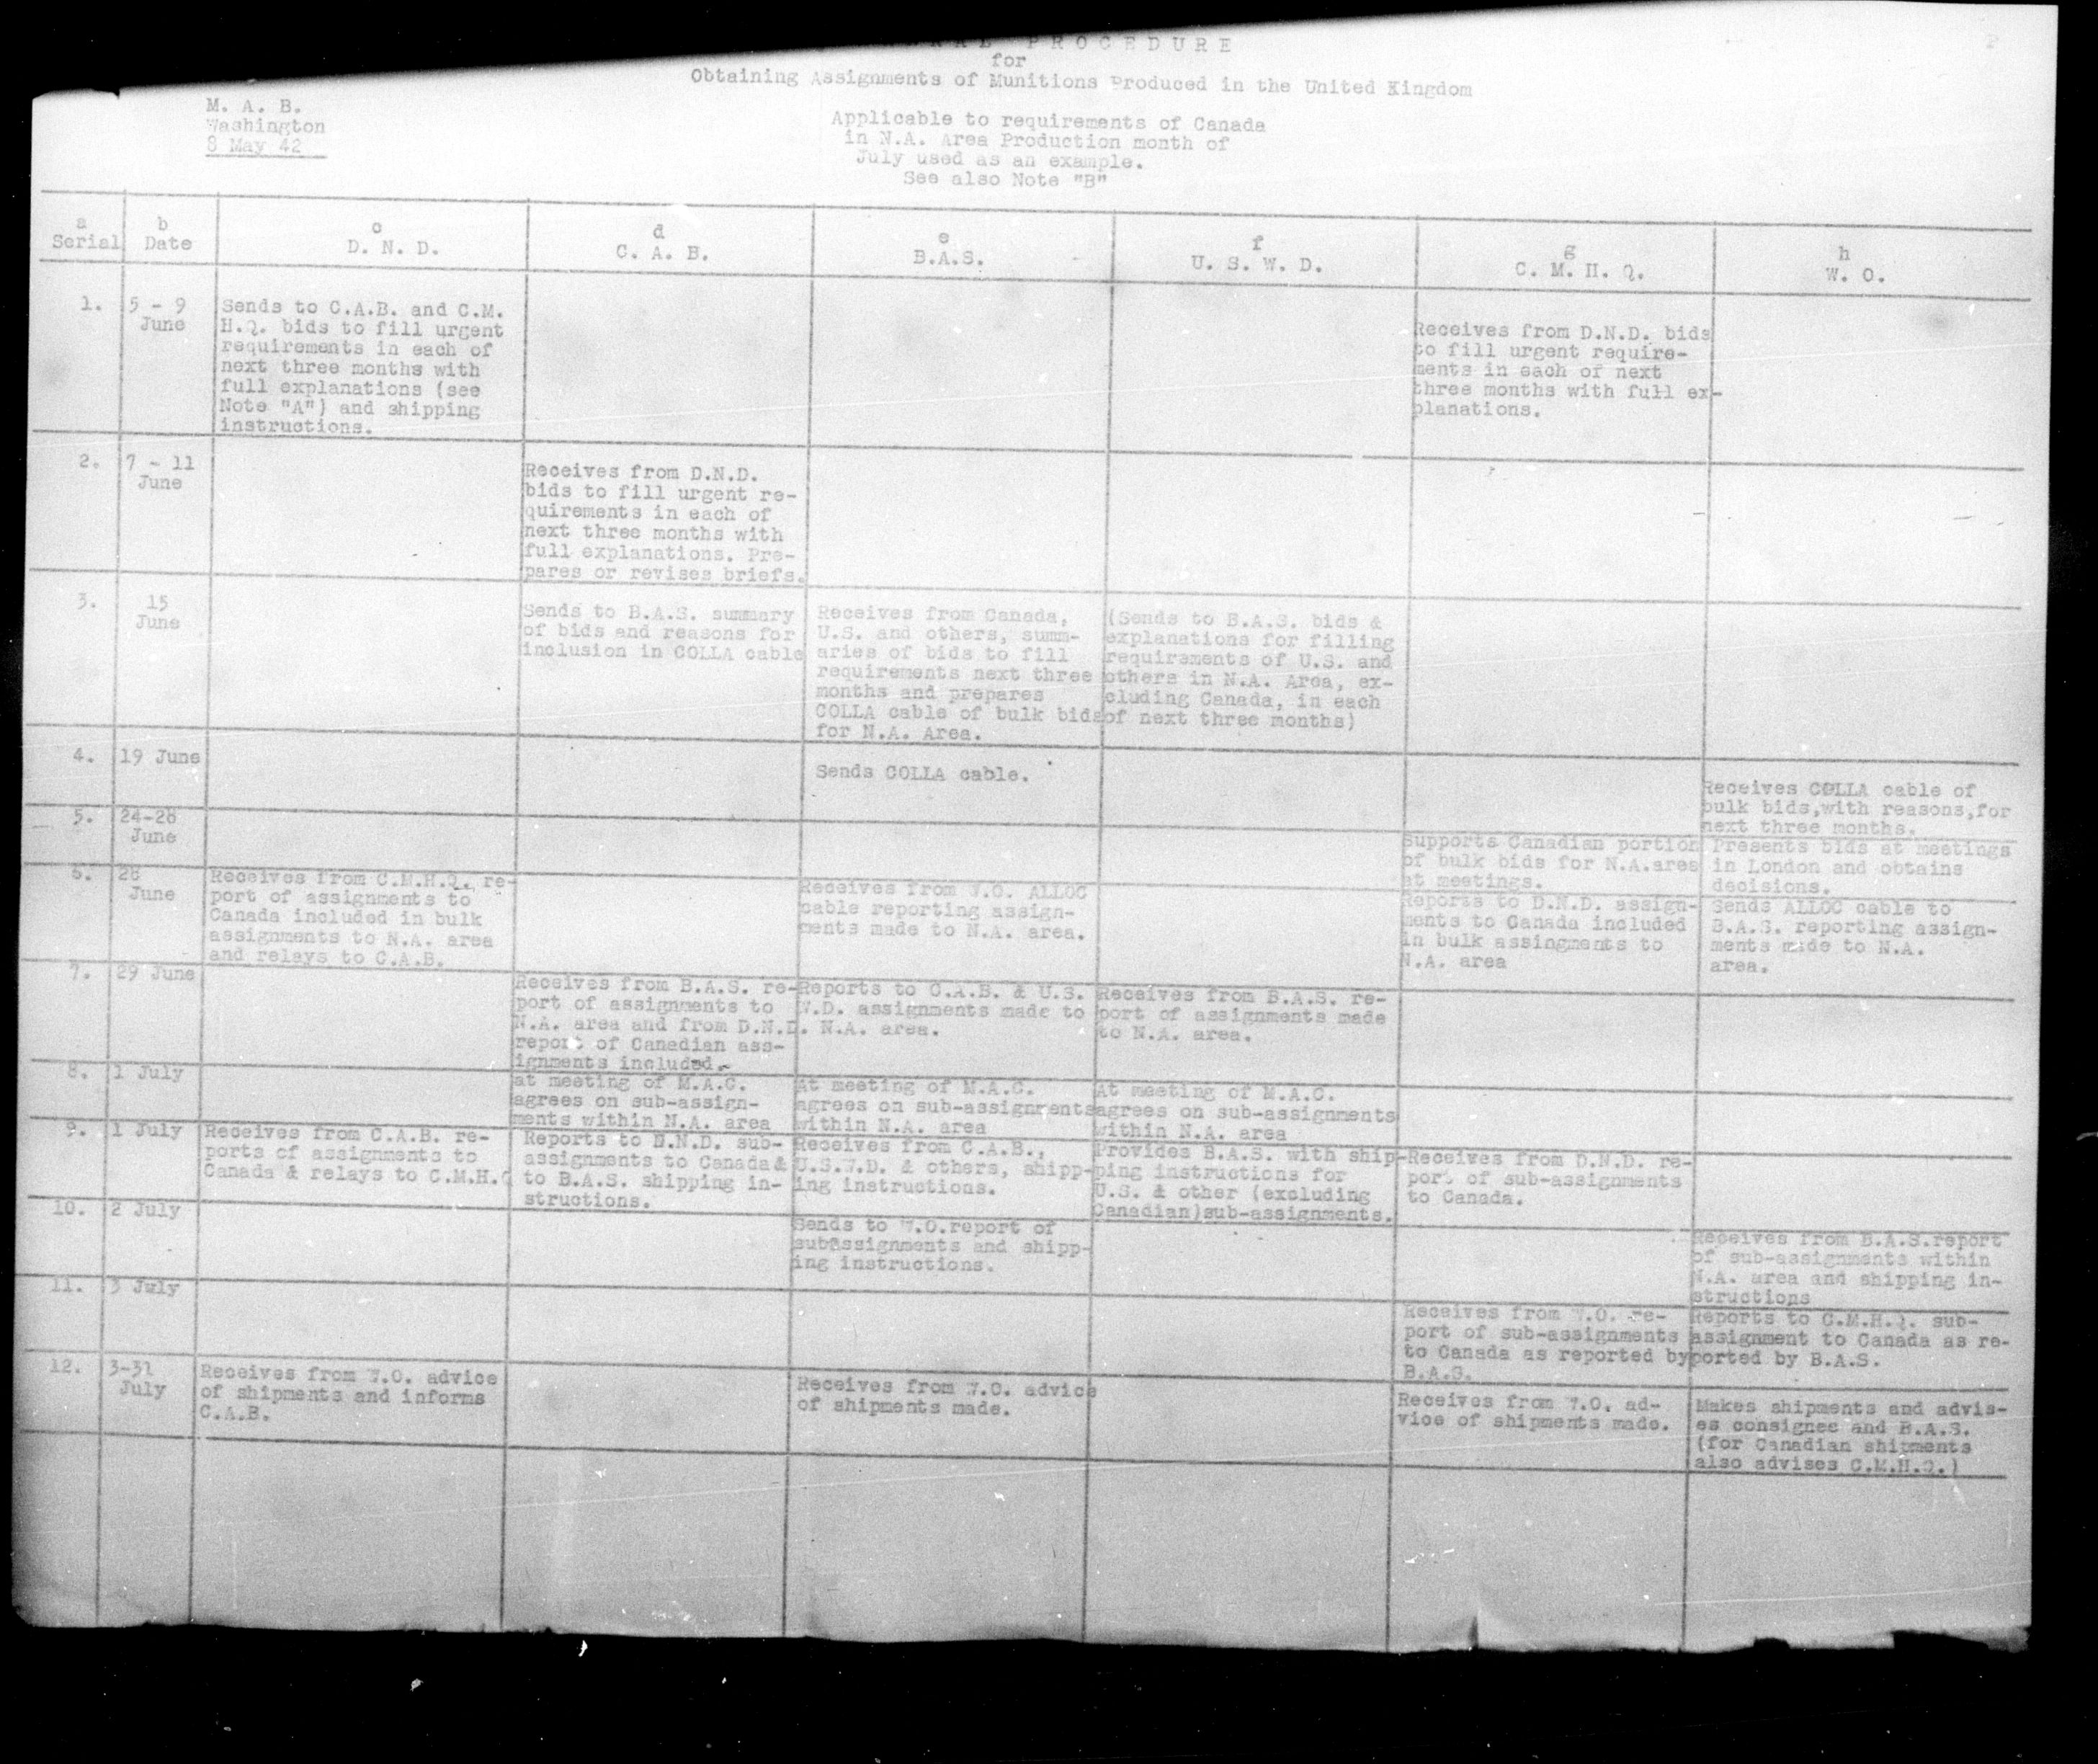 PROCEDURE
for
Obtaining Assignments of Munitions Produced in the United Kingdom
M. A. B.
Washington
8 May 42
Applicable to requirements of Canada
in N.A. Area Production month of
July used as an example.
See also Note "B"
a
Serial
b
Date
c
D. N. D.
d
C. A. B.
e
B.A.S.
f
U. S. W. D.
g
C. M. H. Q.
h
W. O.
1.
5 - 9
June
Sends to C.A.B. and C.M.
H.Q. bids to fill urgent
requirements in each of
next three months with
full explanations (see
Note "A") and shipping
instructions.
Receives from D.N.D. bids
to fill urgent require-
ments in each of next
three months with full ex-
planations.
2.
7 - 11
June
Receives from D.N.D.
bids to fill urgent re-
quirements in each of
next three months with
full explanations. Pre-
pares or revises briefs.
3.
15
June
Sends to B.A.S. summary
of bids and reasons for
inclusion in COLLA cable
Receives from Canada,
U.S. and others, summ-
aries of bids to fill
requirements next three
months and prepares
COLLA cable of bulk bids
for N.A. Area.
(Sends to B.A.S. bids &
explanations for filling
requirements of U.S. and
others in N.A. Area, ex-
cluding Canada, in each
of next three months)
4.
19 June
Sends COLLA cable.
Receives COLLA cable of
bulk bids,with reasons,for
next three months.
5.
24-28
June
Supports Canadian portion
of bulk bids for N.A.area
at meetings.
Presents bids at meetings
in London and obtains
decisions.
6.
28
June
Receives from C.M.H.Q. re-
port of assignments to
Canada included in bulk
assignments to N.A. area
and relays to C.A.B.
Receives from W.O. ALLOC
cable reporting assign-
ments made to N.A. area.
Reports to D.N.D. assign-
ments to Canada included
in bulk assingments to
N.A. area
Sends ALLOC cable to
B.A.S. reporting assign-
ments made to N.A.
area.
7.
29 June
Receives from B.A.S. re-
port of assignments to
N.A. area and from D.N.D.
report of Canadian ass-
ignments included.
Reports to C.A.B. & U.S.
W.D. assignments made to
N.A. area.
Receives from B.A.S. re-
port of assignments made
to N.A. area.
8.
1 July
at meeting of M.A.C.
agrees on sub-assign-
ments within N.A. area
At meeting of M.A.C.
agrees on sub-assignments
within N.A. area
At meeting of M.A.C.
agrees on sub-assignments
within N.A. area
9.
1 July
Receives from C.A.B. re-
ports of assignments to
Canada & relays to C.M.H.Q
Reports to D.N.D. sub-
assignments to Canada &
to B.A.S. shipping in-
structions.
Receives from C.A.B.,
U.S.W.D. & others, shipp-
ing instructions.
Provides B.A.S. with ship-
ping instructions for
U.S. & other (excluding
Canadian)sub-assignments.
Receives from D.N.D. re-
port of sub-assignments
to Canada.
10.
2 July
Sends to W.O.report of
subassignments and shipp-
ing instructions.
Receives from B.A.S.report
of sub-assignments within
N.A. area and shipping in-
structions
11.
3 July
Receives from W.O. re-
port of sub-assignments
to Canada as reported by
B.A.S.
Reports to C.M.H.Q. sub-
assignment to Canada as re-
ported by B.A.S.
12.
3-31
July
Receives from W.O. advice
of shipments and informs
C.A.B.
Receives from W.O. advice
of shipments made.
Receives from W.O. ad-
vice of shipments made.
Makes shipments and advis-
es consignee and B.A.S.
(for Canadian shipments
also advises C.M.H.Q.)